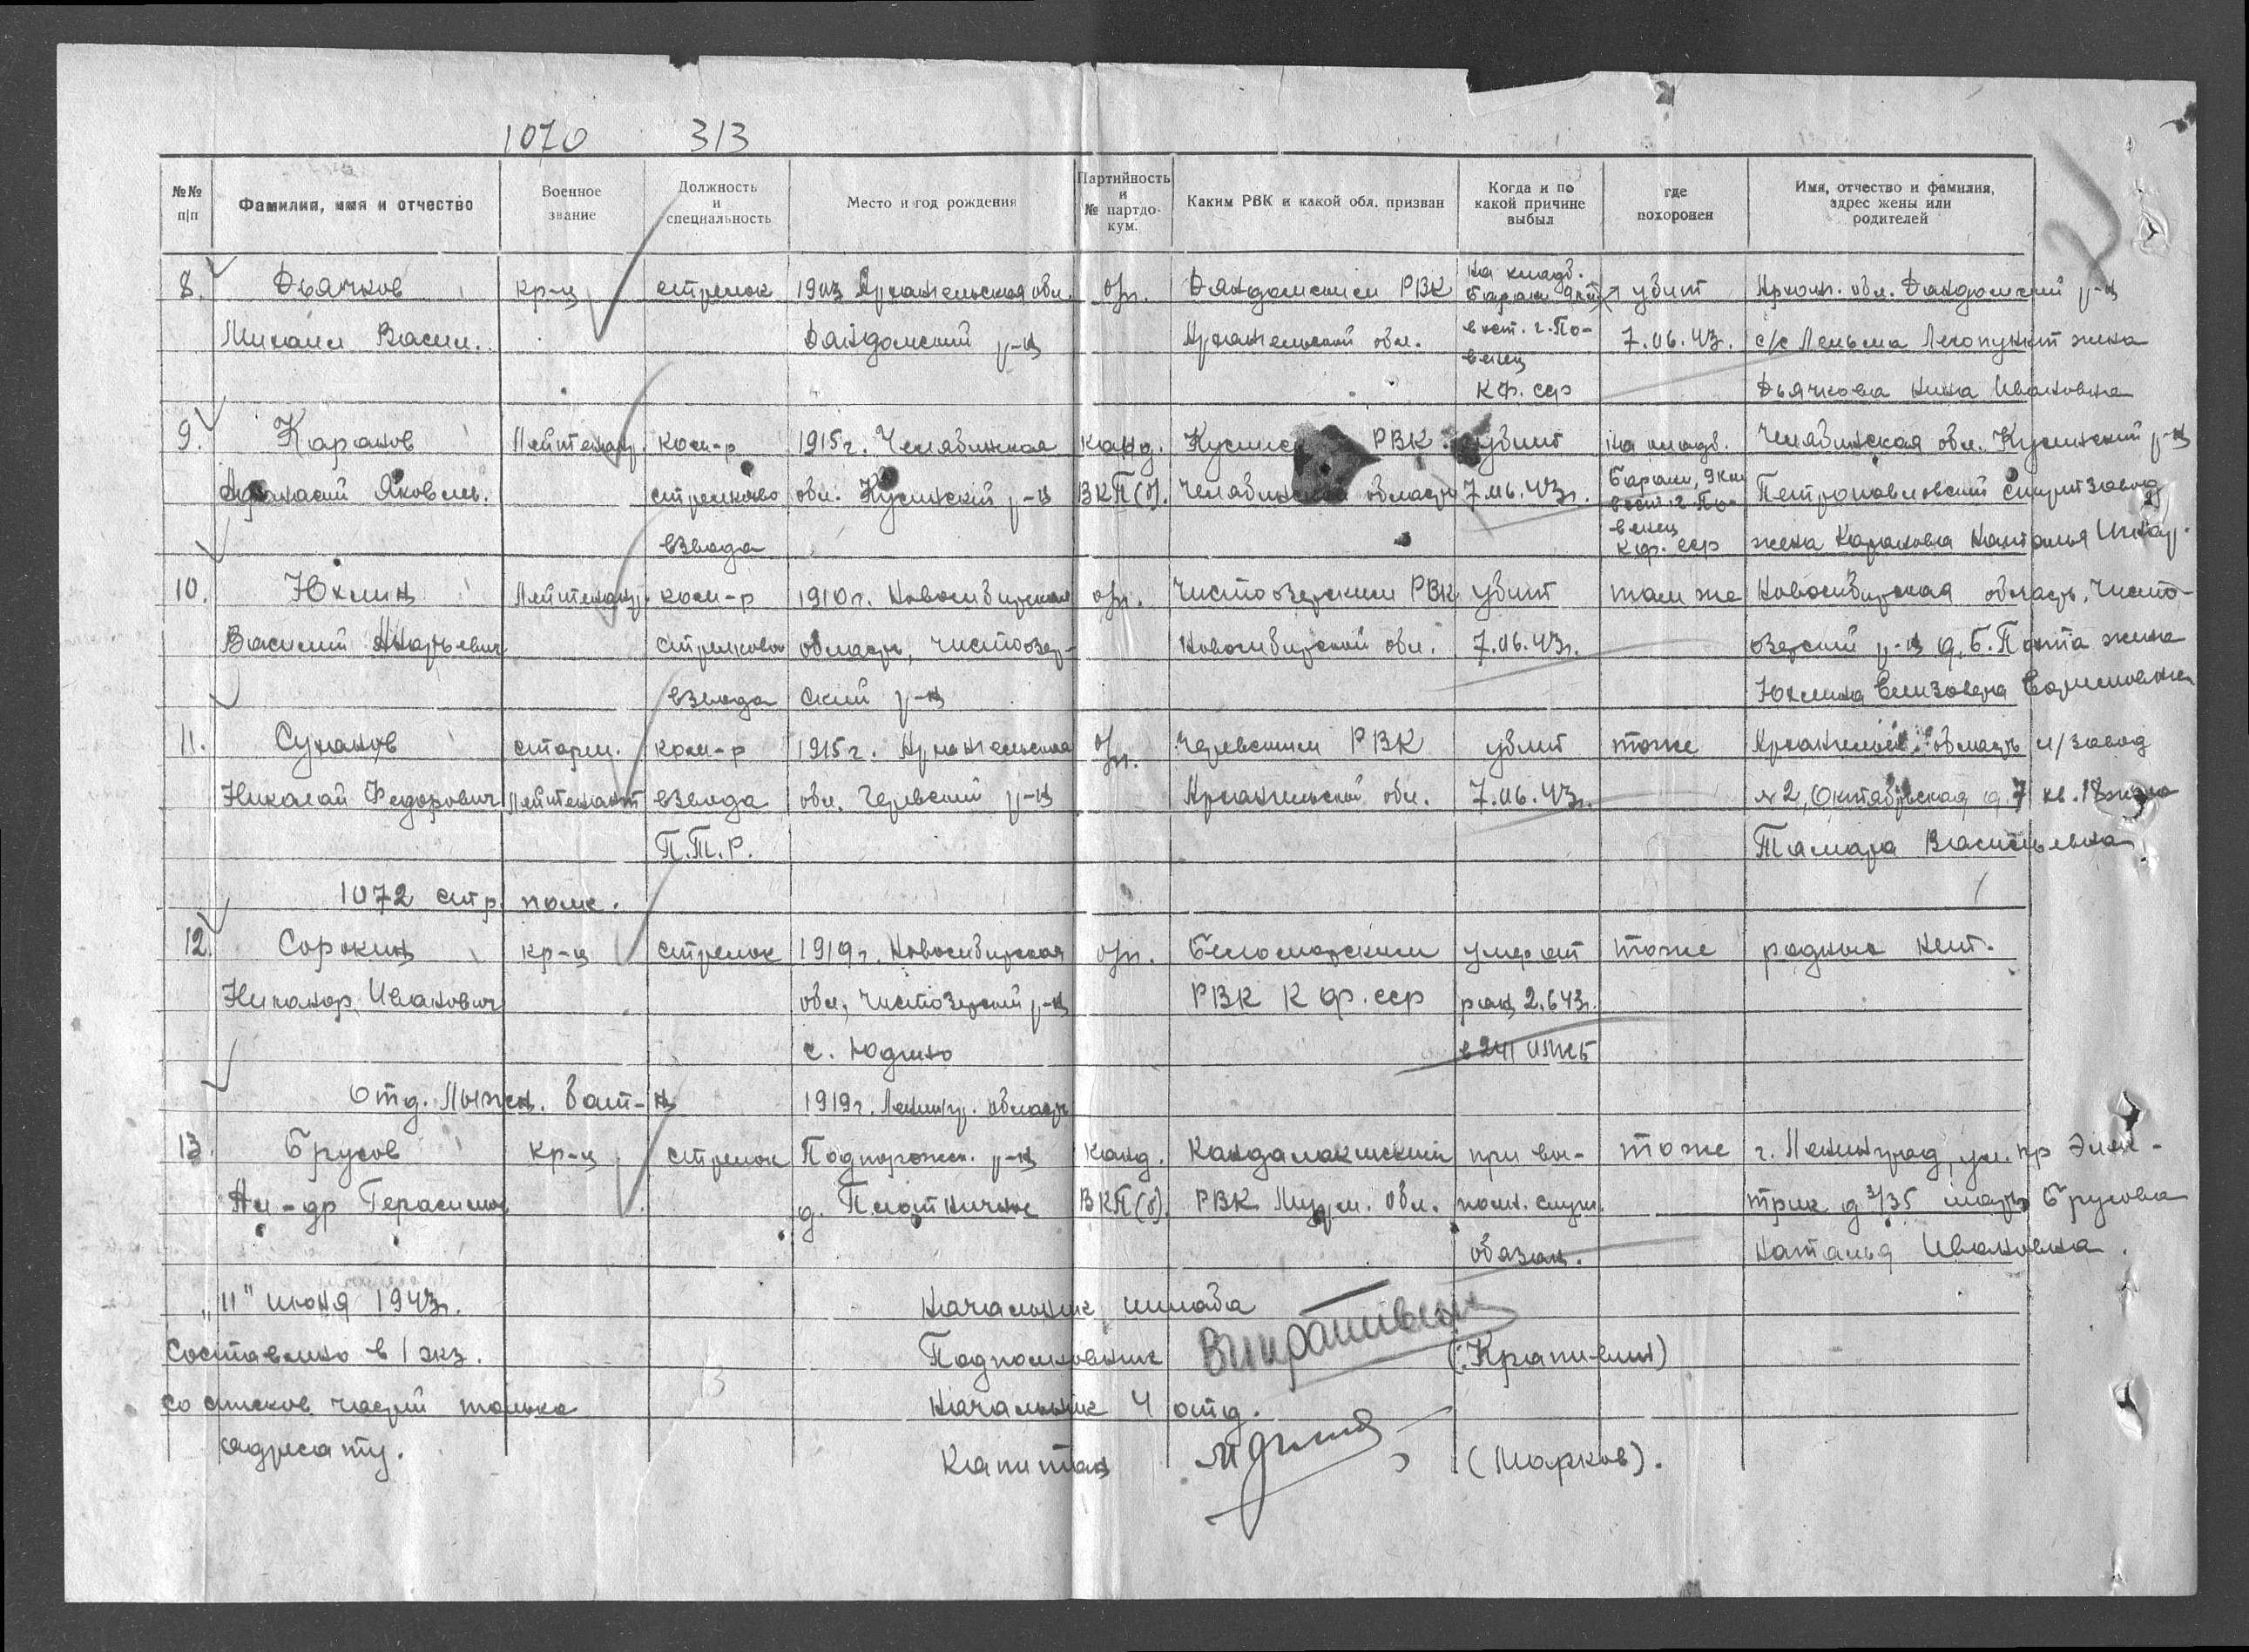 1070 313
№№ п|п
Фамилия, имя и отчество
Военное звание
Должность и специальность
Место и год рождения
Партийность и № партдо-кум.
Каким РВК и какой обл. призван
Когда и по какой причине выбыл
где похоронен
Имя, отчество и фамилия, адрес жены или родителей
8. Дьячков кр-ц стрелок 1903 Архангельская обл. б/п. Няндомским РВК на кладб. убит Архан. обл. Няндомский р-н
Бараки 9 км
Михаил Васил. Няндомский р-н Архангельской обл. вост. г. По- 7.06.43. с/с Лельма Лесопункт жена
венец
К.Ф. сср Дьячкова Нина Ивановна
9. Каранов Лейтенант. ком-р 1915 г. Челябинская канд. Кусинск РВК убит на кладб. Челябинская обл. Кусинский р-н
Афанасий Яковлев. стрелково обл. Кусинский р-н ВКП(б). Челябинской область 7.06.43 г. Бараки, 9 км Петропавловский спиртзавод
вост. г. По-
венец
взвода К.ф. сср жена Каранова Наталья
10. Юхлин Лейтенант. ком-р 1910 г. Новосибирская б/п. Чистоозерским РВК убит там же Новосибирская область, Чисто-
Василий стрелково область, Чистоозер- Новосибирской обл. 7.06.43 г. озерский р-н д. жена
взвода ский р-н Юхлина Елизавета
11. Суханов старш. ком-р 1915 г. Архангельская б/п. Черевским РВК убит тоже Архангельск. область л/завод
Николай Федорович Лейтенант взвода обл. Черевский р-н Архангельской обл. 7.06.43 г. № 2, Октябрьская д. 7 кв. 18 жена
П.Т.Р. Тамара Васильевна
1072 стр. полк.
12. Сорокин кр-ц стрелок 1919 г. Новосибирская б/п. Беломорским умер от тоже родных нет.
Никанор Иванович обл, Чистозерский р-н РВК К ф. сср ран 2.6 43 г.
с. Юдино в 241
Отд. Лыжн. бат-н 1919 г. Ленингр. область
13. Брусов кр-ц стрелок Подпорожск. р-н канд. Кандалакшский при вы- тоже г. Ленинград, ул. пр Элек-
Ал-др Герасимов д. Плотничное ВКП(б). РВК Мурм. Обл. полн. служ. трик д 3/35 мать Брусова
обязан. Наталья Ивановна.
"11" июня 1943 г. Начальник штаба
Составлено в 1 экз. Подполковник (Крапивин)
со списков частей только Начальник 4 отд.
адресату. Капитан (Марков).